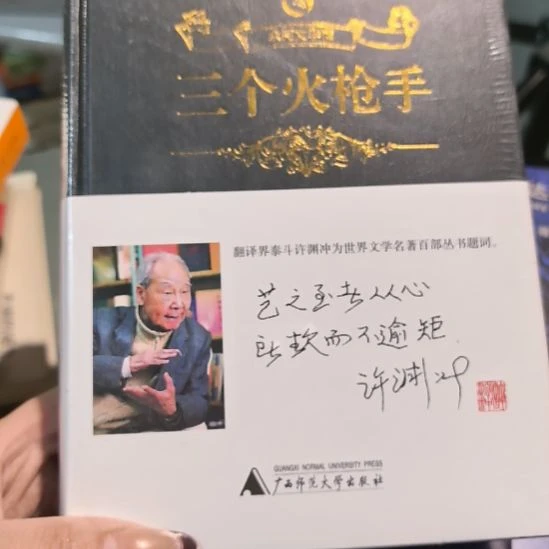 三个火枪手
翻译界泰斗许渊冲为世界文学名著百部丛书题词。
艺之至者从心
所欲而不逾矩
许渊冲
GUANGXI NORMAL UNIVERSITY PRESS
广西师范大学出版社